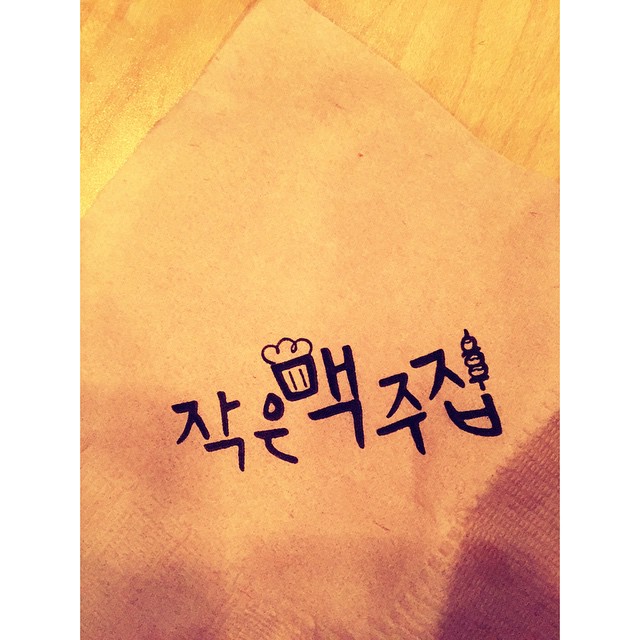 작은맥주집